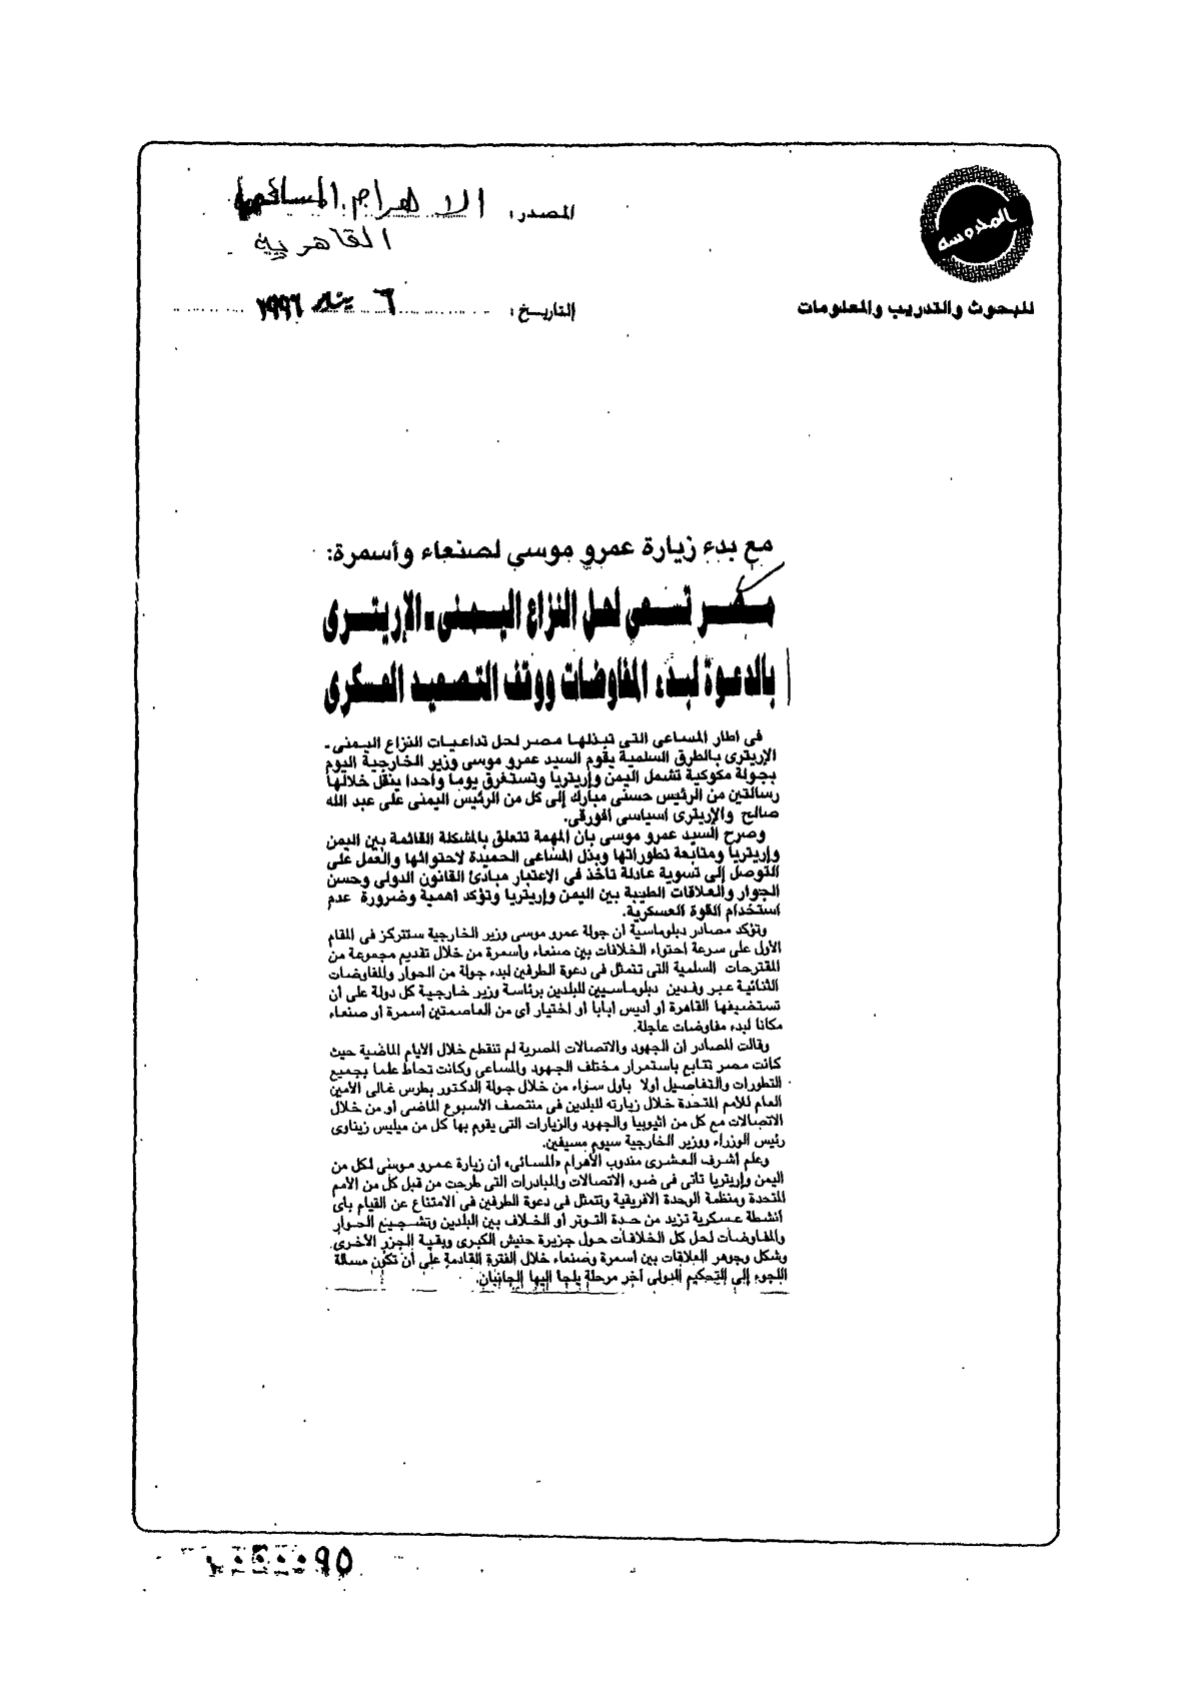 المحروسة
للبحوث والتدريب والمعلومات
المصدر: الاهرام المسائى
القاهرية
التاريخ: ٦ يناير ١٩٩٦
مع بدء زيارة عمرو موسى لصنعاء وأسمرة:
مصر تسعى لحل النزاع اليمنى - الإريترى
بالدعوة لبدء المفاوضات ووقف التصعيد العسكرى
فى اطار المساعى التى تبذلها مصر لحل تداعيات النزاع اليمنى -
الإريترى بالطرق السلمية يقوم السيد عمرو موسى وزير الخارجية اليوم
بجولة مكوكية تشمل اليمن وإريتريا وتستغرق يوما واحدا ينقل خلالها
رسالتين من الرئيس حسنى مبارك إلى كل من الرئيس اليمنى على عبد الله
صالح والإريترى اسياسى افورقى.
وصرح السيد عمرو موسى بأن المهمة تتعلق بالمشكلة القائمة بين اليمن
وإريتريا ومتابعة تطوراتها وبذل المساعى الحميدة لاحتوائها والعمل على
التوصل إلى تسوية عادلة تأخذ فى الإعتبار مبادئ القانون الدولى وحسن
الجوار والعلاقات الطيبة بين اليمن وإريتريا وتؤكد أهمية وضرورة عدم
استخدام القوة العسكرية.
وتؤكد مصادر دبلوماسية أن جولة عمرو موسى وزير الخارجية ستتركز فى المقام
الأول على سرعة احتواء الخلافات بين صنعاء وأسمرة من خلال تقديم مجموعة من
المقترحات السلمية التى تتمثل فى دعوة الطرفين لبدء جولة من الحوار والمفاوضات
الثنائية عبر وفدين دبلوماسيين للبلدين برئاسة وزير خارجية كل دولة على أن
تستضيفها القاهرة أو أديس أبابا أو اختيار أى من العاصمتين أسمرة أو صنعاء
مكانا لبدء مفاوضات عاجلة.
وقالت المصادر ان الجهود والاتصالات المصرية لم تنقطع خلال الأيام الماضية حيث
كانت مصر تتابع باستمرار مختلف الجهود والمساعى وكانت تحاط علما بجميع
التطورات والتفاصيل أولا بأول سواء من خلال جولة الدكتور بطرس غالى الأمين
العام للأمم المتحدة خلال زيارته للبلدين فى منتصف الأسبوع الماضى أو من خلال
الاتصالات مع كل من اثيوبيا والجهود والزيارات التى يقوم بها كل من ميليس زيناوى
رئيس الوزراء ووزير الخارجية سيوم مسيفين.
وعلم أشرف العشرى مندوب الأهرام «المسائى» أن زيارة عمرو موسى لكل من
اليمن وإريتريا تأتى فى ضوء الاتصالات والمبادرات التى طرحت من قبل كل من الأمم
المتحدة ومنظمة الوحدة الافريقية وتتمثل فى دعوة الطرفين فى الامتناع عن القيام بأى
أنشطة عسكرية تزيد من حدة التوتر أو الخلاف بين البلدين وتشجيع الحوار
والمفاوضات لحل كل الخلافات حول جزيرة حنيش الكبرى وبقية الجزر الأخرى
وشكل وجوهر العلاقات بين أسمرة وصنعاء خلال الفترة القادمة على أن تكون مسألة
اللجوء إلى التحكيم الدولى آخر مرحلة يلجأ اليها الجانبان.